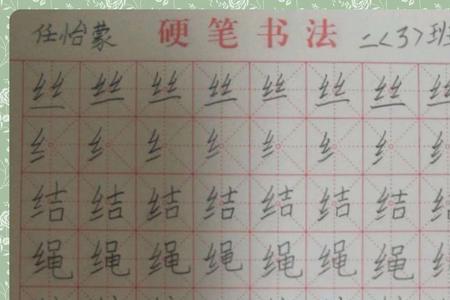 任怡蒙 硬笔书法 二(3)班
丝 丝 丝 丝 丝 丝 丝 丝
纟 纟 纟 纟 纟 纟 纟 纟
结 结 结 结 结 结 结 结
绳 绳 绳 绳 绳 绳 绳 绳